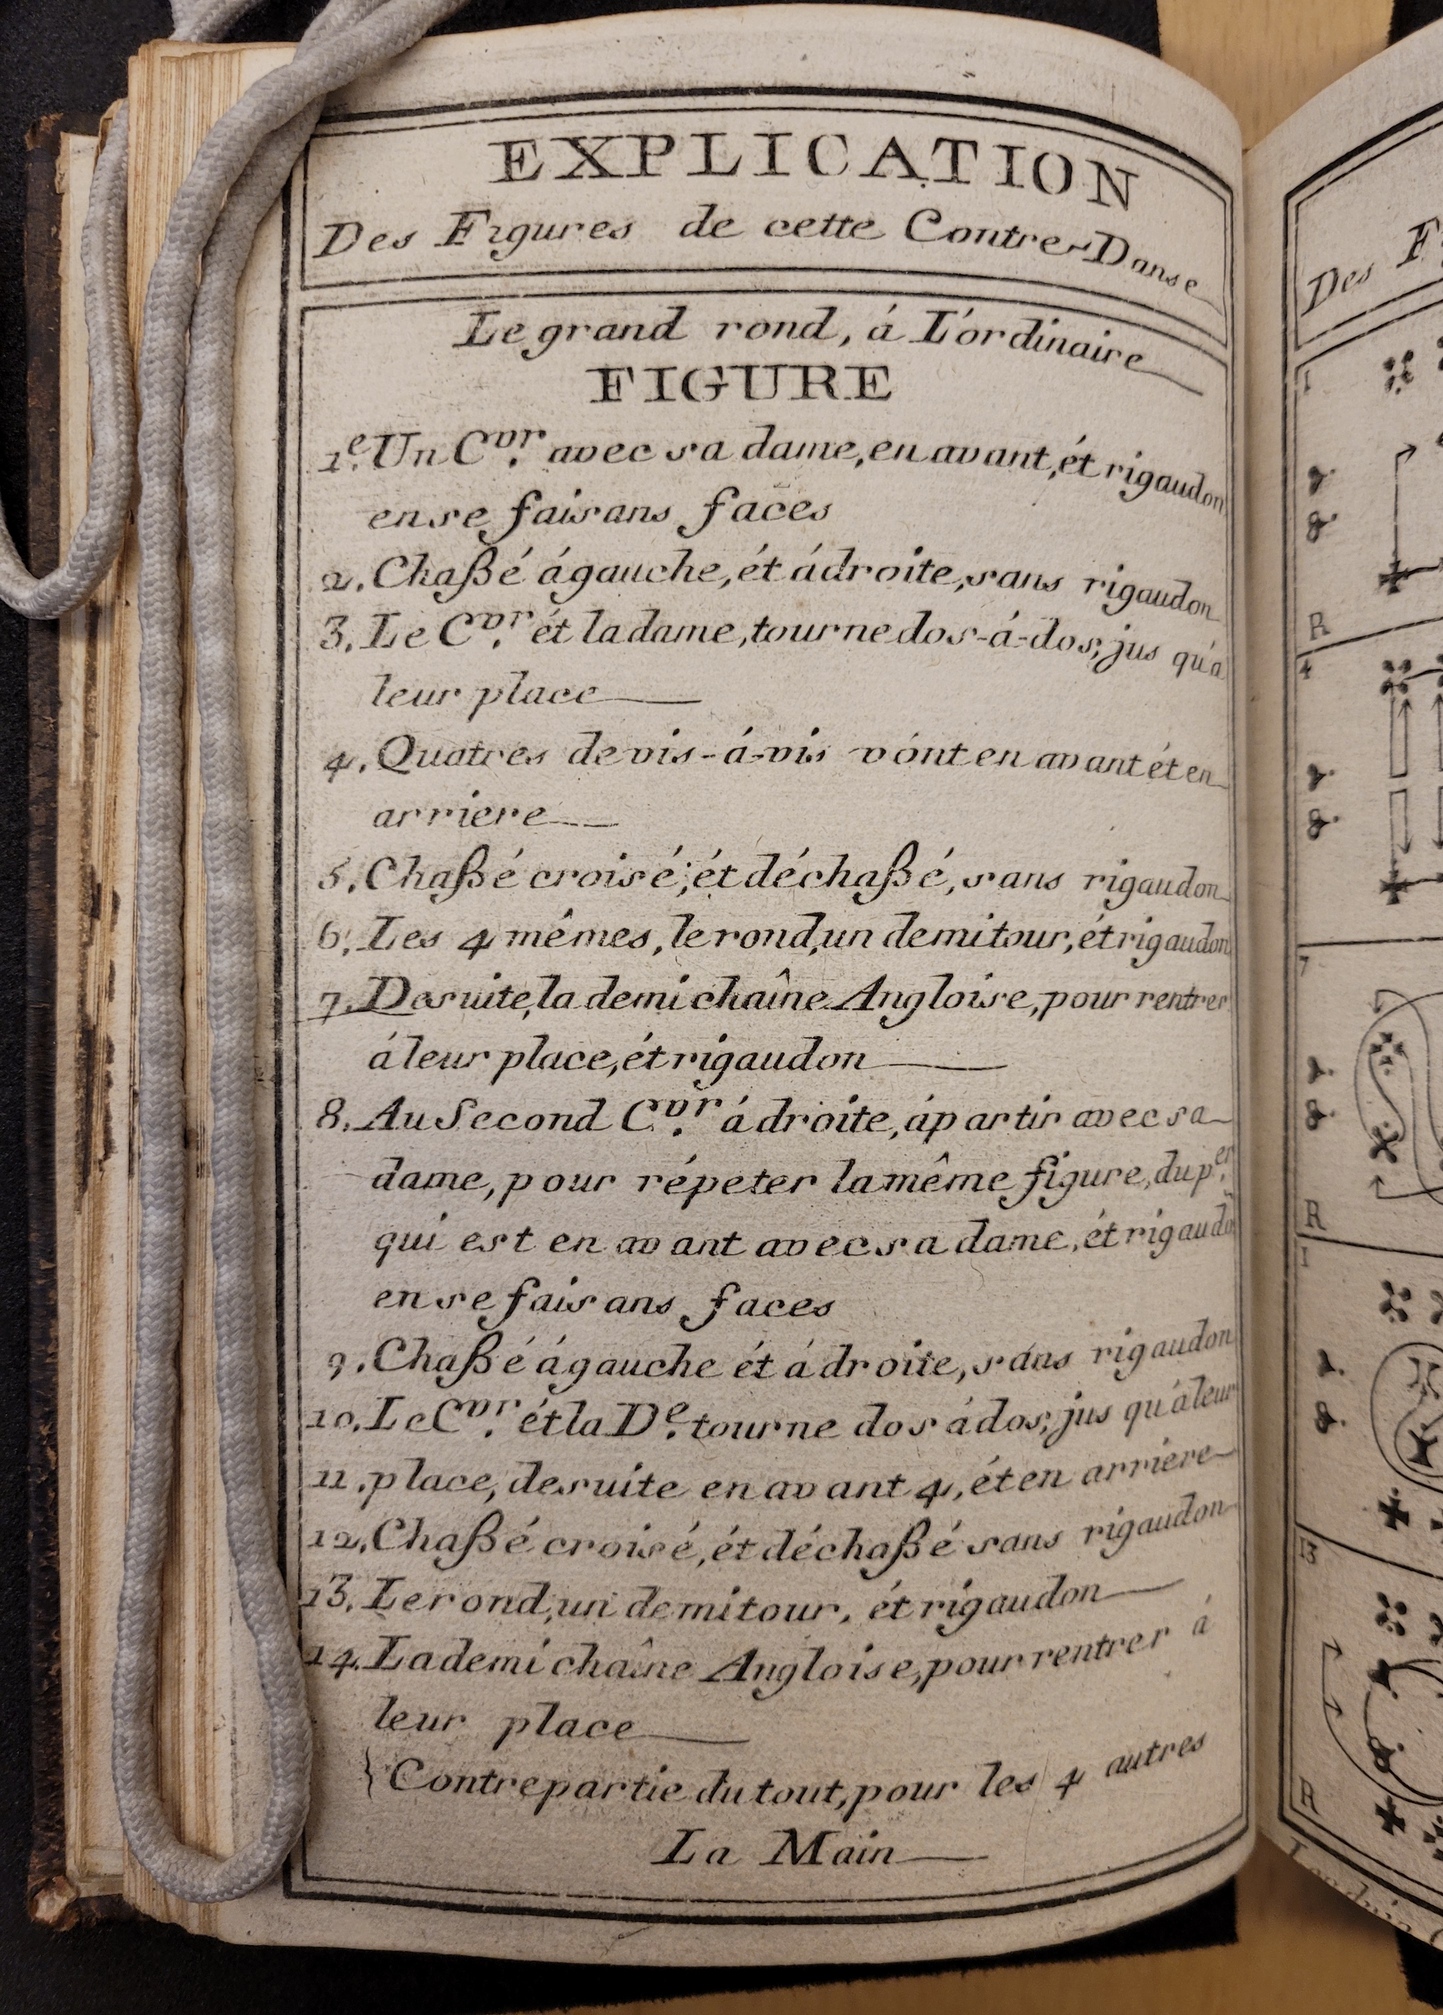 EXPLICATION
Des Figures de cette Contre-Danse
Le grand rond, á L'ordinaire
FIGURE
1.e Un C.vr avec sa dame, en avant, ét rigaudon
en se faisans faces
2. Chaßé á gauche, ét á droite, sans rigaudon
3. Le C.vr ét la dame, tourne dos-á-dos; jus qu'a
leur place
4. Quatres de vis-á-vis vónt en avant ét en
arriere
5. Chaßé croisé; ét déchaßé, sans rigaudon
6. Les 4 mêmes, le rond, un demi tour, ét rigaudon
7. De suite, la demi chaîne Angloise, pour rentrer
á leur place, ét rigaudon
8. Au Second C.vr á droite, á partir avec sa
dame, pour répeter la même figure, du p.er
qui est en avant avec sa dame, ét rigaudon
en se faisans faces
9. Chaßé á gauche ét á droite, sans rigaudon
10. Le C.vr ét la D.e tourne dos á dos; jus qu'á leur
11. place, de suite en avant 4, ét en arriere
12. Chaßé croisé, ét déchaßé sans rigaudon
13. Le rond, un demi tour, ét rigaudon
14. La demi chaîne Angloise, pour rentrer á
leur place
{ Contre partie du tout, pour les 4 autres
La Main
Des F
1
R
4
7
R
1
13
R